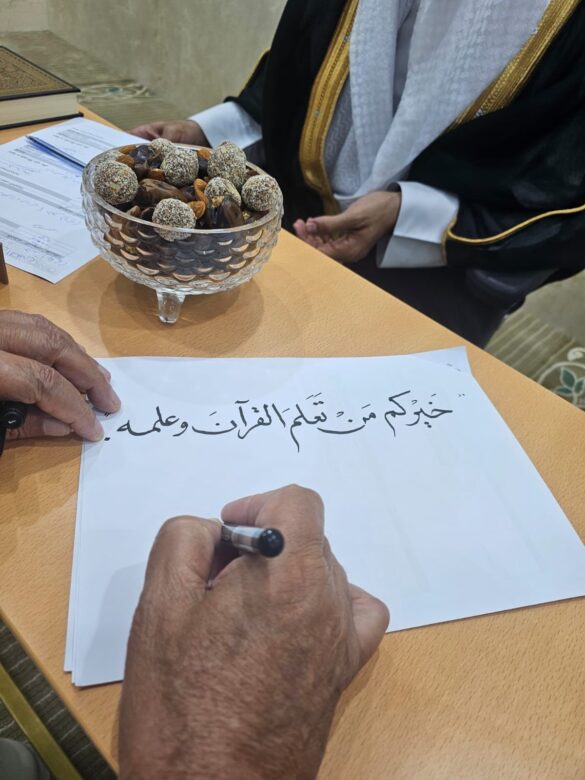 "خَيْركم مَنْ تَعَلمَ القُرآنَ وعلمه.